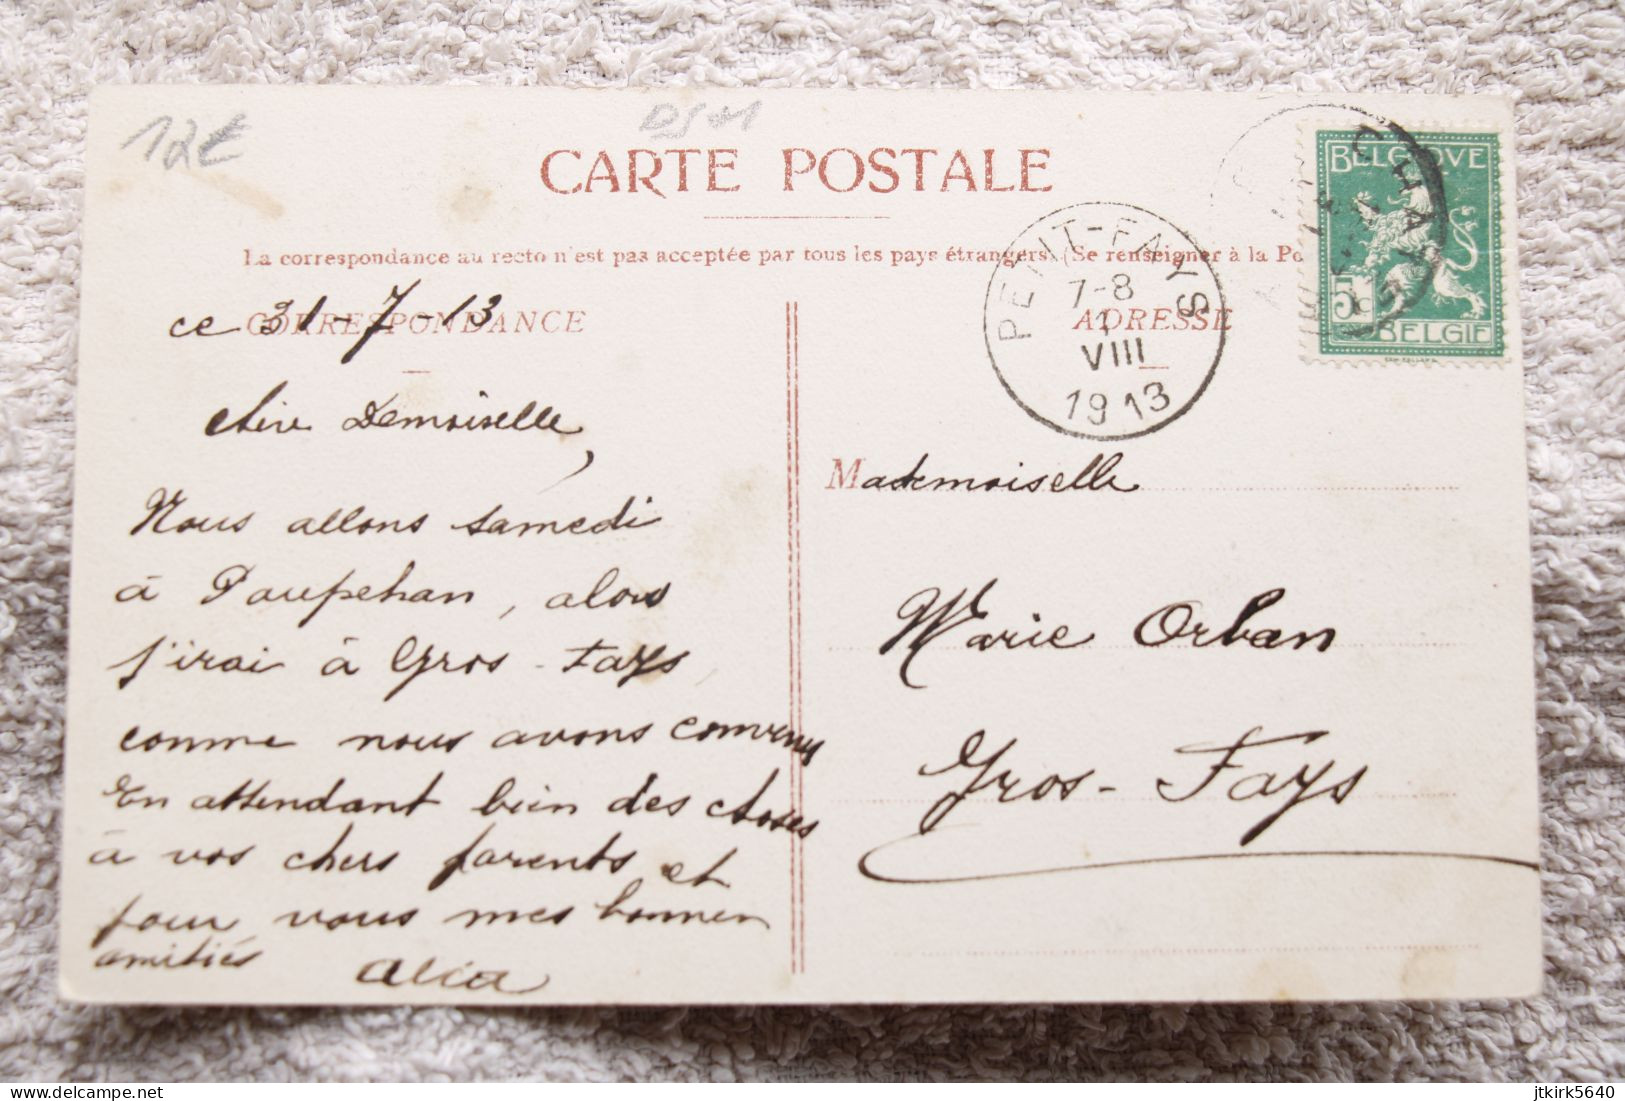 12€
CARTE POSTALE
La correspondance au recto n'est pas acceptée par tous les pays étrangers. (Se renseigner à la Po
CORRESPONDANCE
ce 31-7-13
Chère Demoiselle,
Nous allons samedi
à Poupehan, alors
j'irai à Gros-Fays
comme nous avons convenu
En attendant bien des choses
à vos chers parents et
pour vous mes bonnes
amitiés Alice
PETIT-FAYS
7-8
1
VIII
1913
ADRESSE
BELGIQUE
5c
BELGIE
Mademoiselle
Marie Orban
Gros-Fays
delcampe.net
jtkirk5640